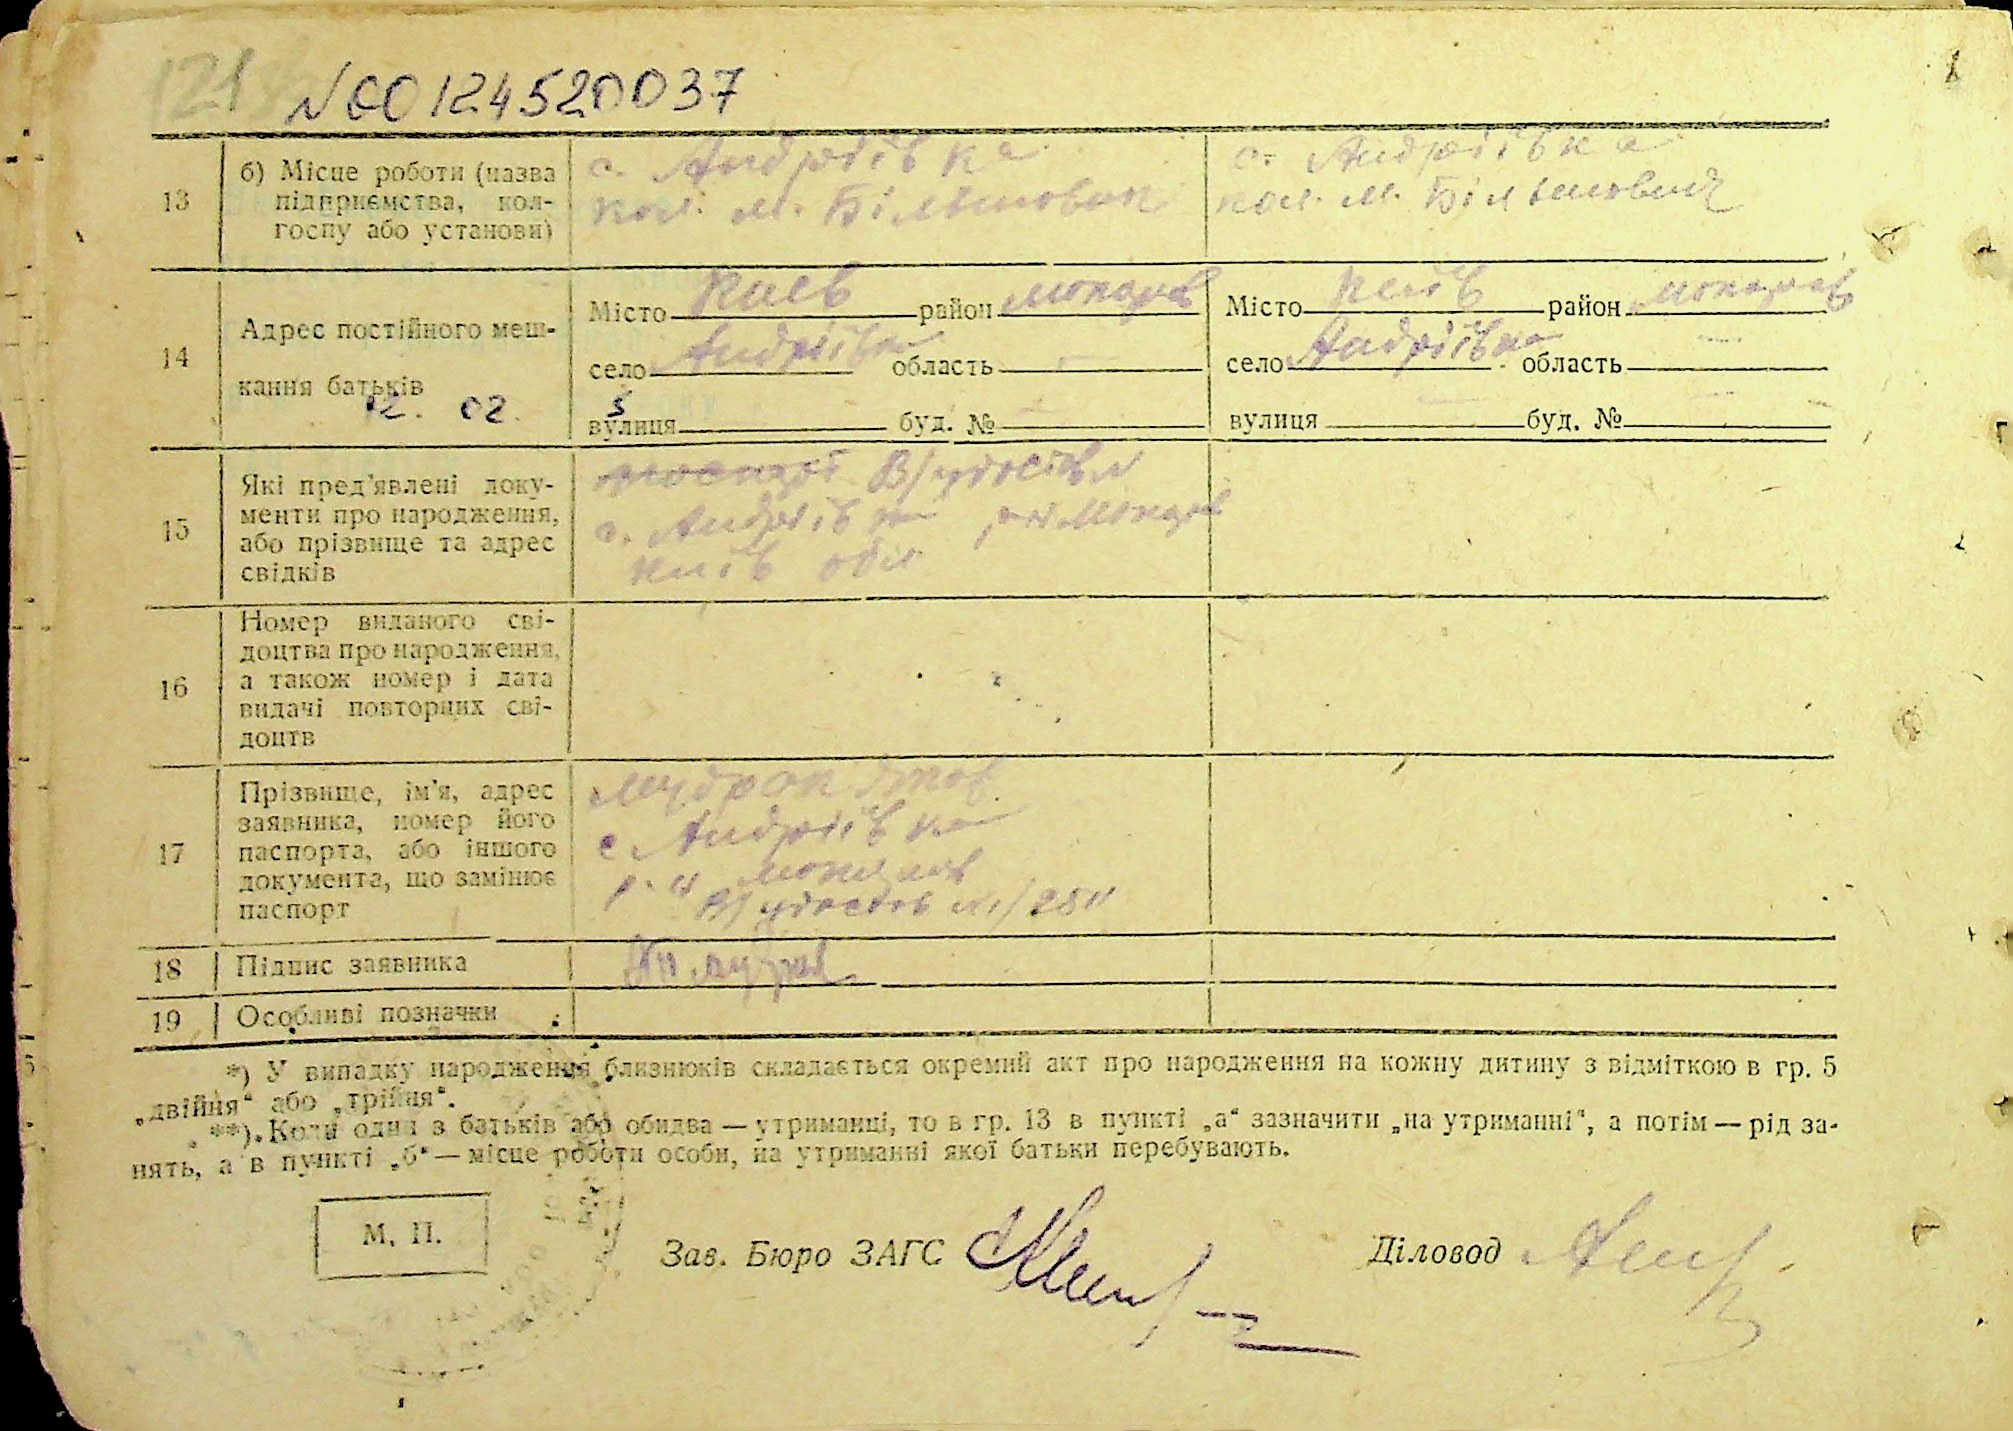 121
№00124520037
13
б) Місце роботи (назва підприємства, колгоспу або установи)
с. Андріївка
кол. м. Більшовик
с. Андріївка
кол. м. Більшовик
14
Адрес постійного мешкання батьків
02.
Місто Киев район Макарів
село Андріївка область —
вулиця буд. №
Місто Київ район Макарів
село Андріївка область
вулиця буд. №
15
Які пред'явлені документи про народження, або прізвище та адрес свідків
с. Андріївка
Київ обл
16
Номер виданого свідоцтва про народження, а також номер і дата видачі повторних свідоцтв
17
Прізвище, ім'я, адрес заявника, номер його паспорта, або іншого документа, що замінює паспорт
с Андріївка
р-н Макарів
18
Підпис заявника
19
Особливі позначки
*) У випадку народження близнюків складається окремий акт про народження на кожну дитину з відміткою в гр. 5
„двійня“ або „трійня“.
**) Коли один з батьків або обидва — утриманці, то в гр. 13 в пункті „а“ зазначити „на утриманні“, а потім — рід за-
нять, а в пункті „б“ — місце роботи особи, на утриманні якої батьки перебувають.
М. П.
Зав. Бюро ЗАГС
Діловод